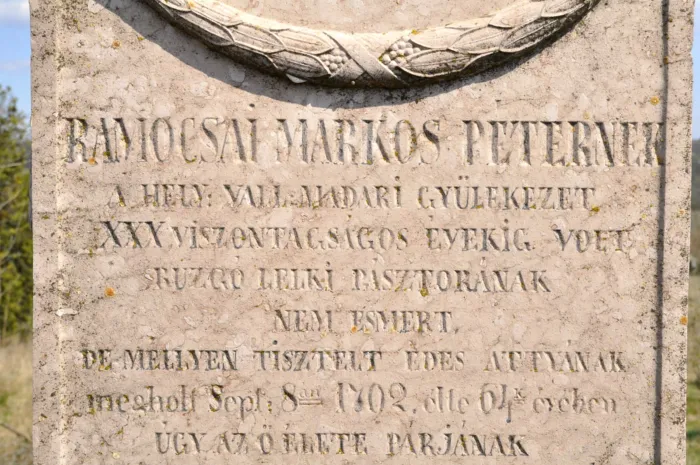 RAMOCSAI MARKOS PÉTERNEK
A HELY: VALL: MADARI GYÜLEKEZET
XXX VISZONTAGSÁGOS ÉVEKIG VOLT
BUZGÓ LELKI PÁSZTORÁNAK
NEM ESMERT,
DE MÉLLYEN TISZTELT ÉDES ATTYÁNAK
megholt Sept: 8án 1792. élte 64k évében
ÚGY AZ Ő ÉLETE PÁRJÁNAK